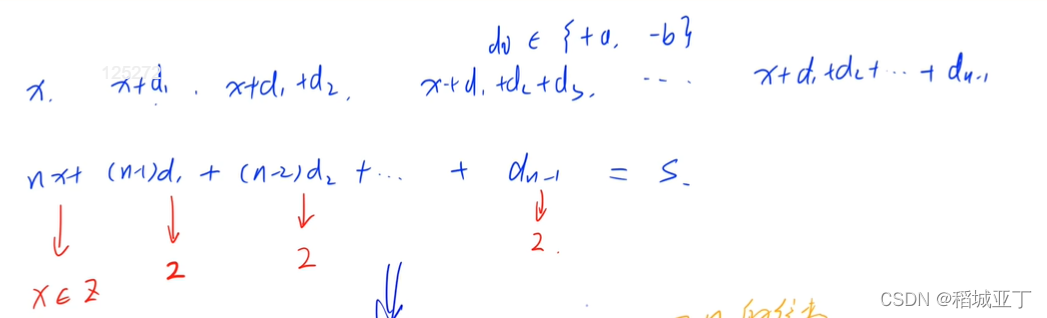 di ∈ {+a, -b}
x. x+d₁. x+d₁+d₂. x+d₁+d₂+d₃. --- x+d₁+d₂+⋯+dₙ₋₁
nx+ (n-1)d₁ + (n-2)d₂ +⋯ + dₙ₋₁ = s.
↓ ↓ ↓ ↓
x∈Z 2 2 2.
⇓
CSDN @稻城亚丁